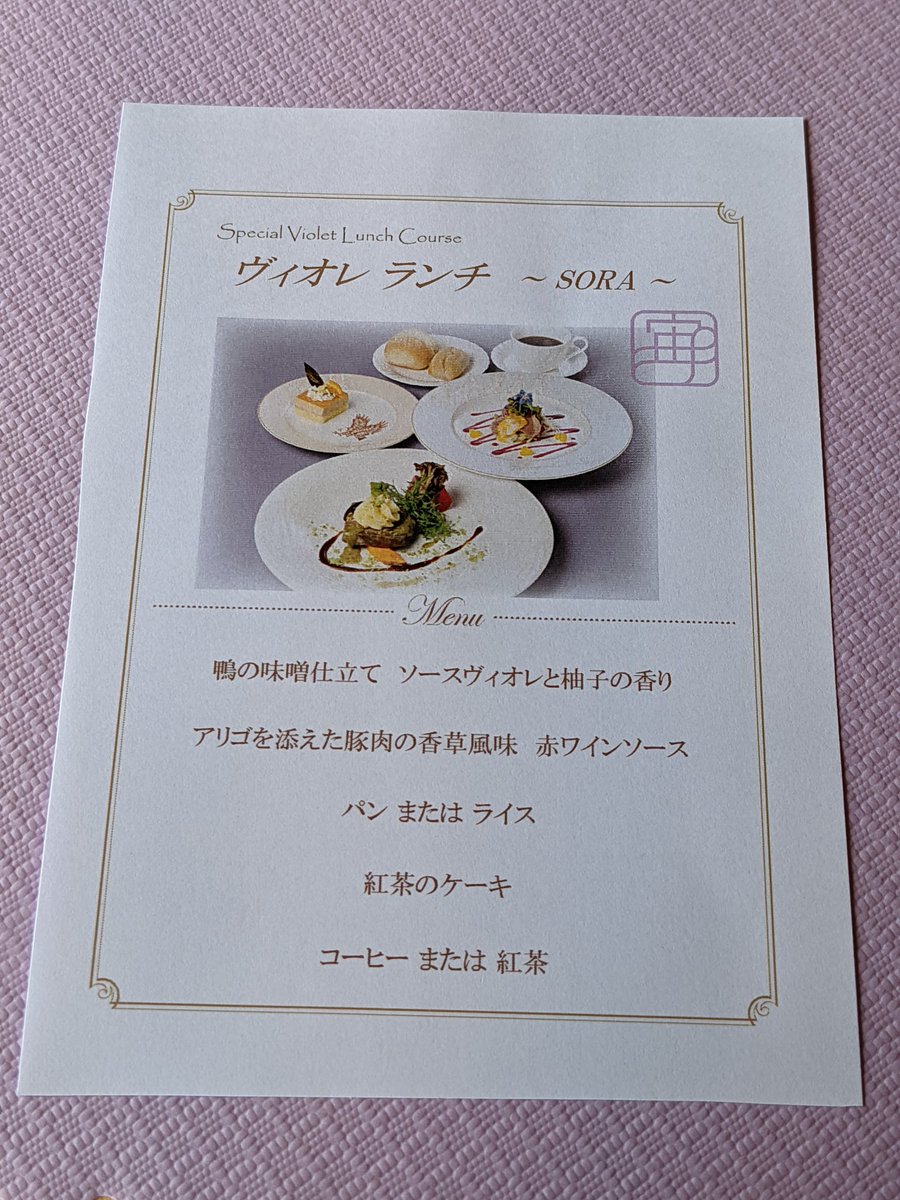 Special Violet Lunch Course
ヴィオレ ランチ ～ SORA ～
宙
Menu
鴨の味噌仕立て ソースヴィオレと柚子の香り
アリゴを添えた豚肉の香草風味 赤ワインソース
パン または ライス
紅茶のケーキ
コーヒー または 紅茶